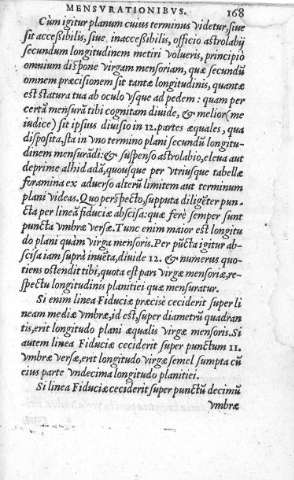 MENSVRATIONIBVS. 168
Cum igitur planum cuius terminus videtur, siue
sit accessibilis, siue inaccessibilis, officio astrolabij
secundum longitudinem metiri volueris, principio
omnium dispone virgam mensoriam, quæ secundũ
omnem præcisionem sit tantæ longitudinis, quantæ
est statura tua ab oculo vsque ad pedem : quam per
certã mensurã tibi cognitam diuide, & melior (me
iudice) sit ipsius diuisio in 12. partes æquales, qua
disposita, sta in vno termino plani secundũ longitu-
dinem mensurãdi: & suspenso astrolabio, eleua aut
deprime alhidadã, quousque per vtriusque tabellæ
foramina ex aduerso alterũ limitem aut terminum
plani videas. Quo perspecto, supputa diligẽter pun-
cta per lineã fiduciæ abscisa: quæ ferè semper sunt
puncta vmbræ versæ. Tunc enim maior est longitu
do plani quàm virga mensoris. Per pũcta igitur ab-
scisa iam suprà inuẽta, diuide 12. & numerus quo-
tiens ostendit tibi, quota est pars virgæ mensoriæ, re-
spectu longitudinis planitiei quæ mensuratur.
Si enim linea Fiduciæ præcisè ceciderit super li
neam mediæ vmbræ, id est, super diametrũ quadran
tis, erit longitudo plani æqualis virgæ mensoris. Si
autem linea Fiduciæ ceciderit super punctum 11.
vmbræ versæ, erit longitudo virgæ semel sumpta cũ
eius parte vndecima longitudo planitiei.
Si linea Fiduciæ ceciderit super punctũ decimũ
vmbræ